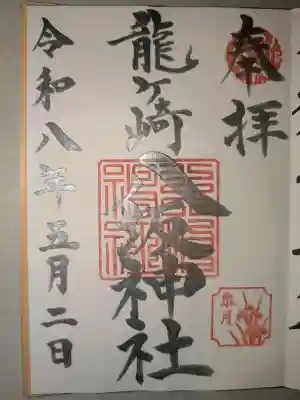 奉拝
龍ヶ崎八坂神社
皐月
令和八年五月二日